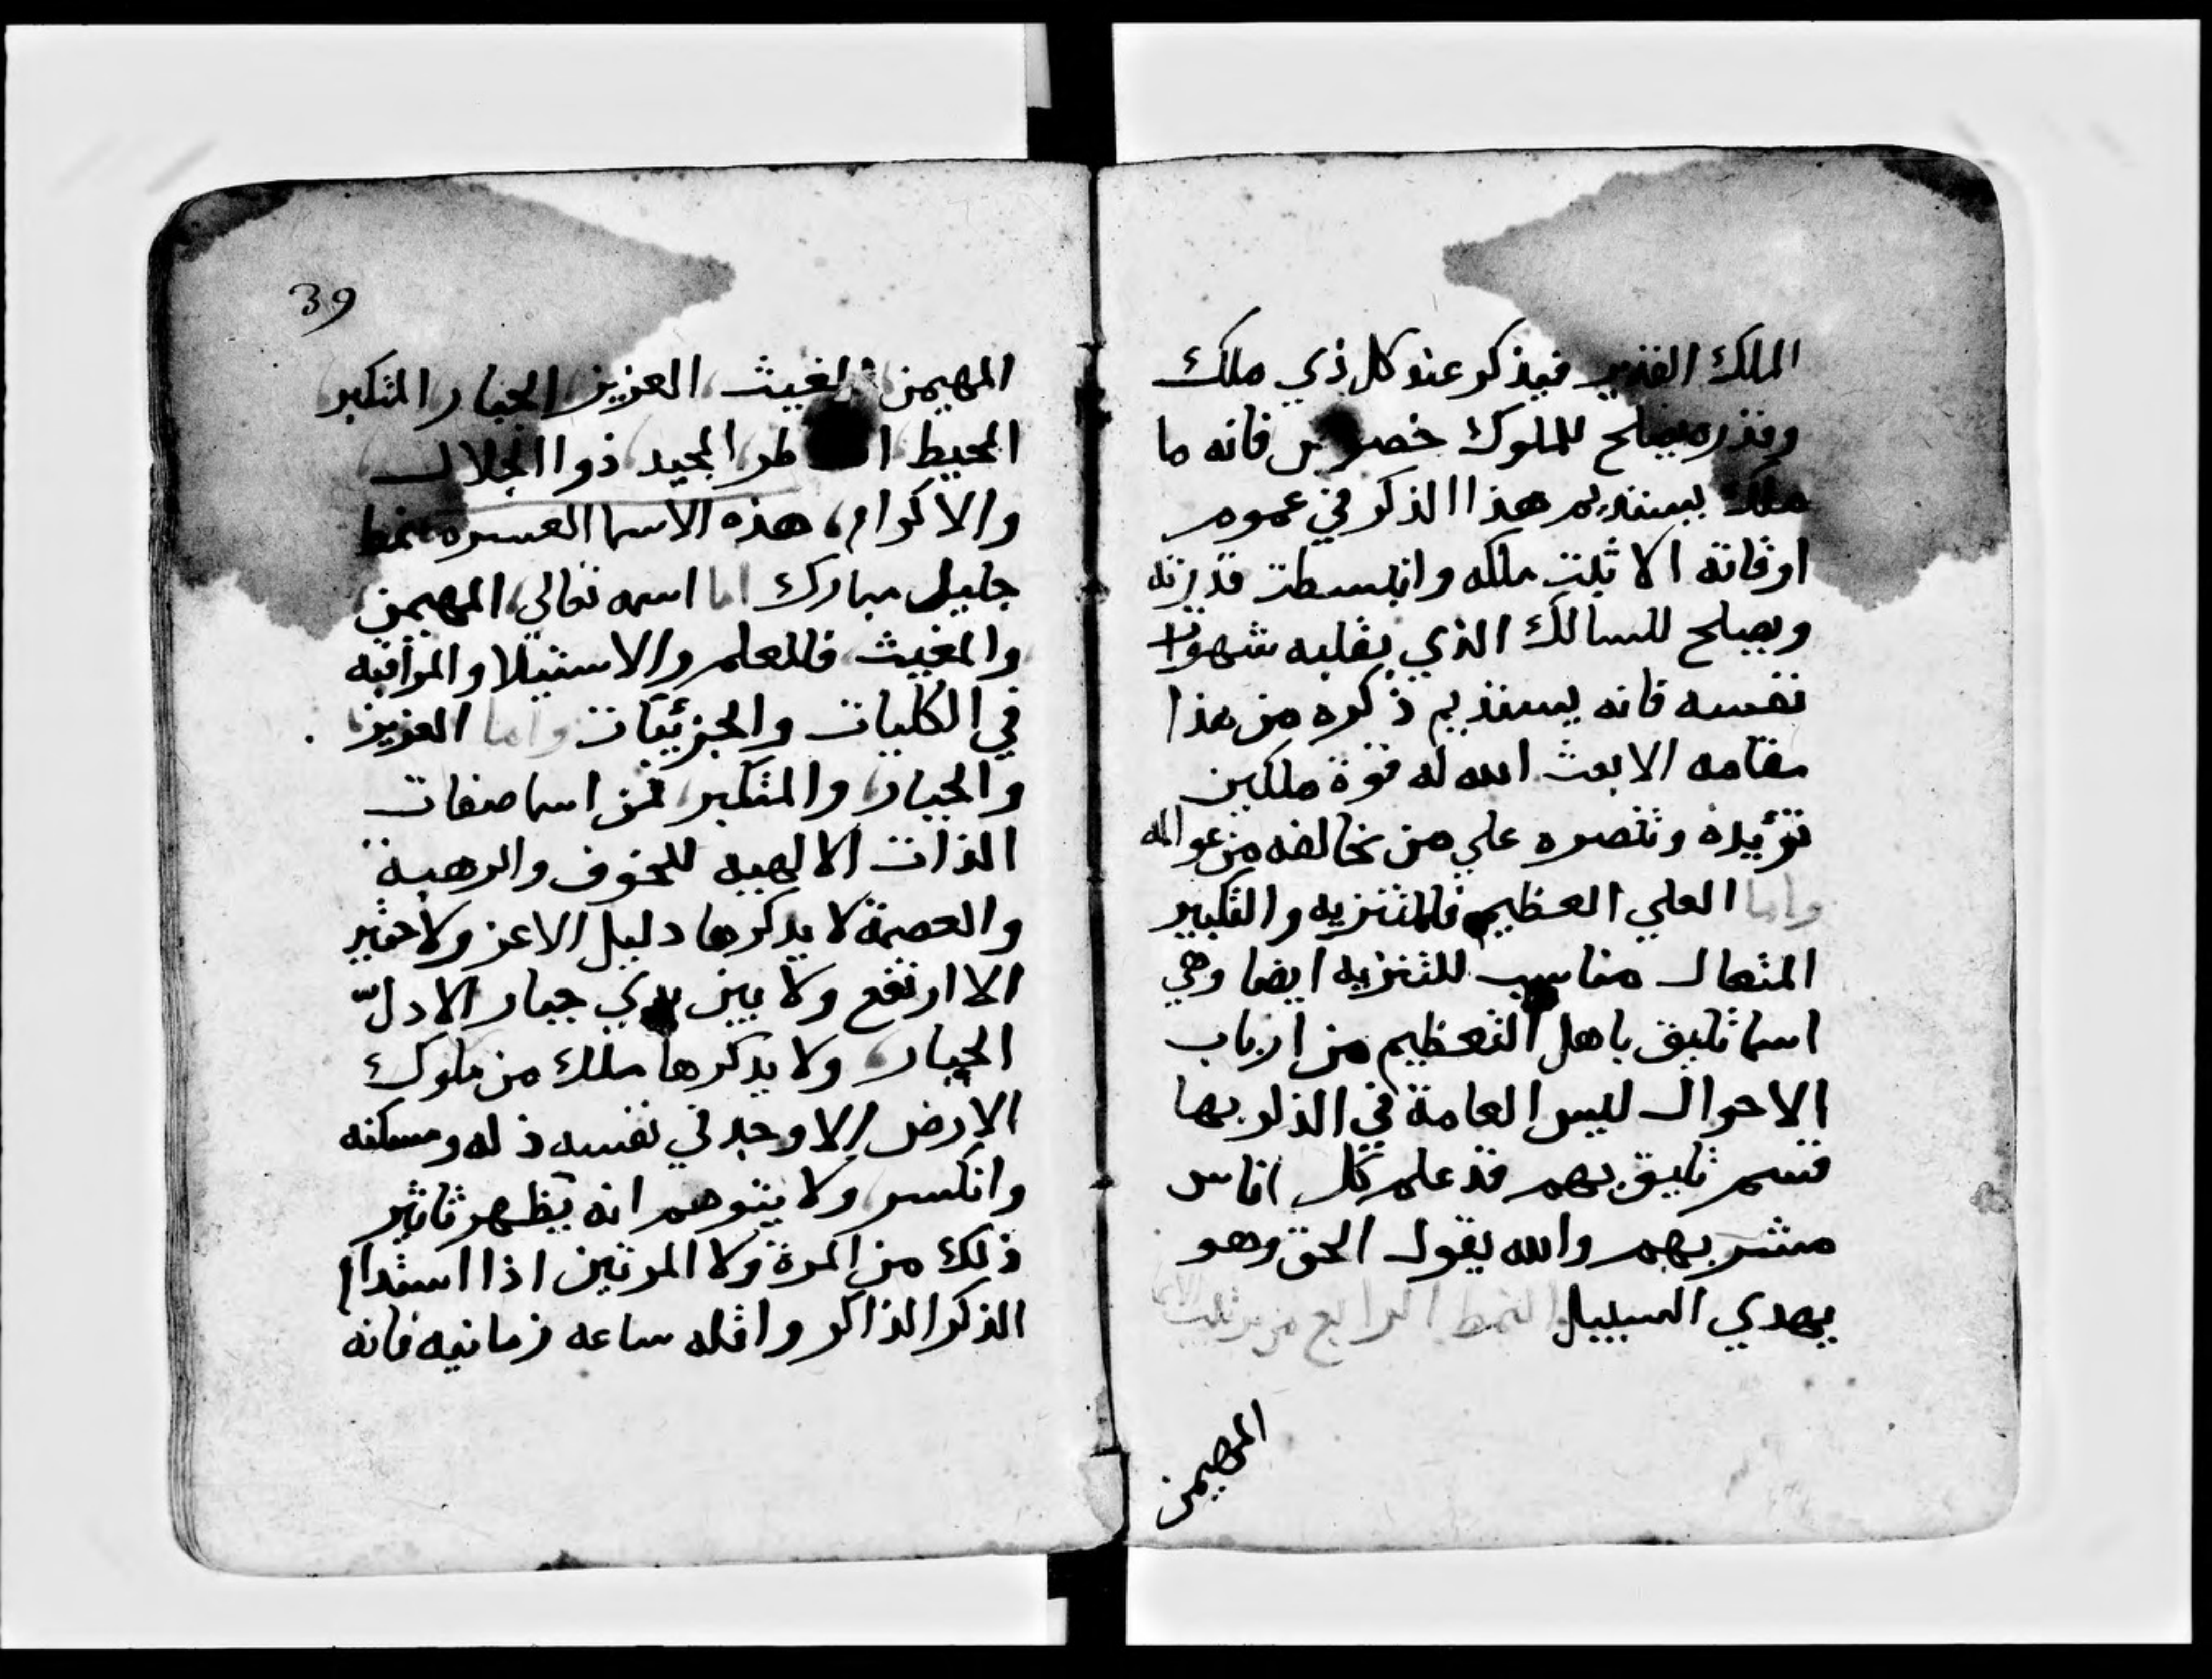 الملك القدير فيذكر عند كل ذي ملك
وقدره يصلح للملوك خصو فانه ما
ملك يستديم هذا الذكر في عموم
اوقاته الا ثبت ملكه وانبسطت قدرته
ويصلح للسالك الذي يغلبه شهوات
نفسه فانه يستديم ذكره من هذا
مقامه الا بعث الله له قوة ملكين
تؤيده وتنصره علي من يخالفه من عوالمه
واما العلي العظيم فللتنزيه والتكبير
المتعال مناسب للتنزيه ايضا وهي
اسما تليق باهل التعظيم من ارباب
الاحوال ليس العامة في الذكر بها
قسم تليق بهم قد علم كل اناس
مشربهم والله يقول الحق وهو
يهدي السبيل النمط الرابع من
المهيمن
39
المهيمن المغيث العزيز الجبار المتكبر
المحيط طر المجيد ذوا الجلال
والاكرام هذه الاسما العشره نمط
جليل مبارك اما اسمه تعالي المهيمن
والمغيث فللعلم والاستيلا والمراقبه
في الكليات والجزئيات واما العزيز
والجبار والمتكبر فمن اسما صفات
الذات الالهيه للخوف والرهبة
والعصمة لا يذكرها دليل الا عز ولا حقير
الا ارتفع ولا بين يدي جبار الا دلّ
الجبار ولا يدكرها ملك من ملوك
الارض الا وجد في نفسه ذله ومسكنه
وانكسر ولا يتوهم انه يظهر تاثير
ذلك من المرة ولا المرتين اذا استدام
الذكر الذاكر واقله ساعه زمانيه فانه